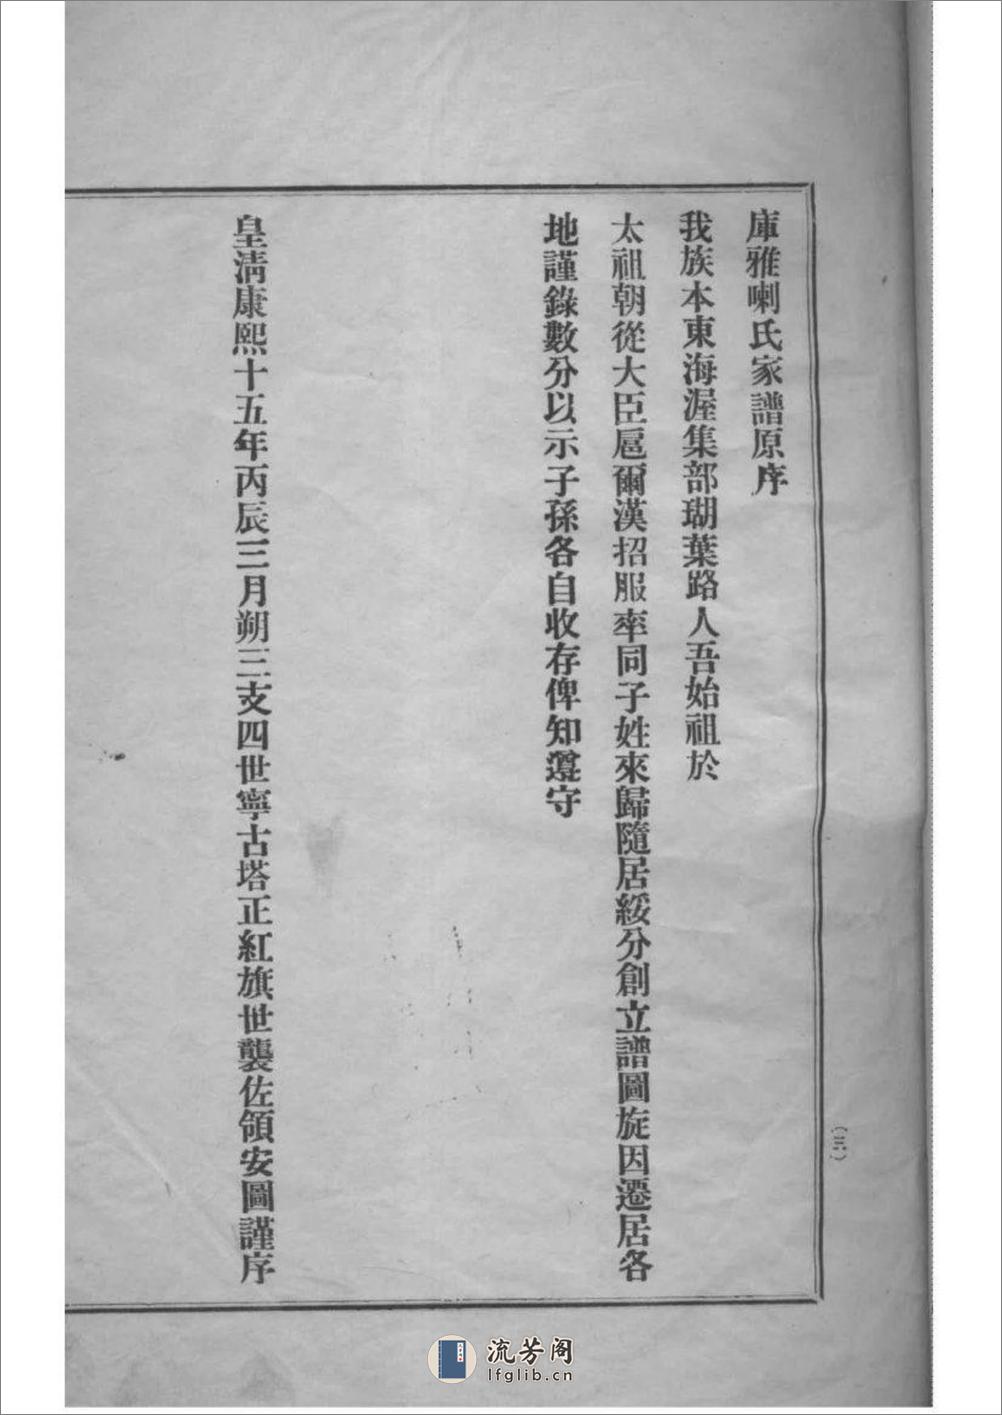 庫雅喇氏家譜原序
我族本東海渥集部瑚葉路人吾始祖於
太祖朝從大臣扈爾漢招服率同子姓來歸隨居綏分創立譜圖旋因遷居各
地謹錄數分以示子孫各自收存俾知遵守
皇淸康熙十五年丙辰三月朔三支四世寧古塔正紅旗世襲佐領安圖謹序
(三)
流芳阁
lfglib.cn